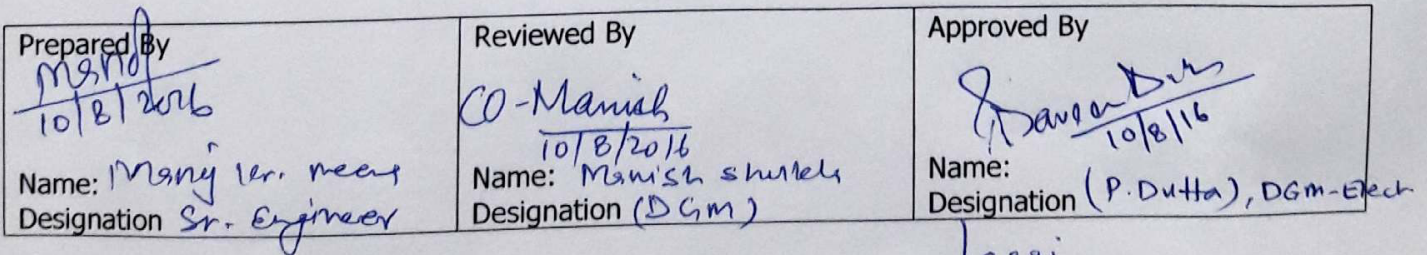 Prepared By
Manoj
10/8/2016
Name: Manoj kr. meena
Designation Sr. Engineer
Reviewed By
CO-Manish
10/8/2016
Name: Manish shukla
Designation (DGM)
Approved By
10/8/16
Name:
Designation (P. Dutta), DGM-Elect